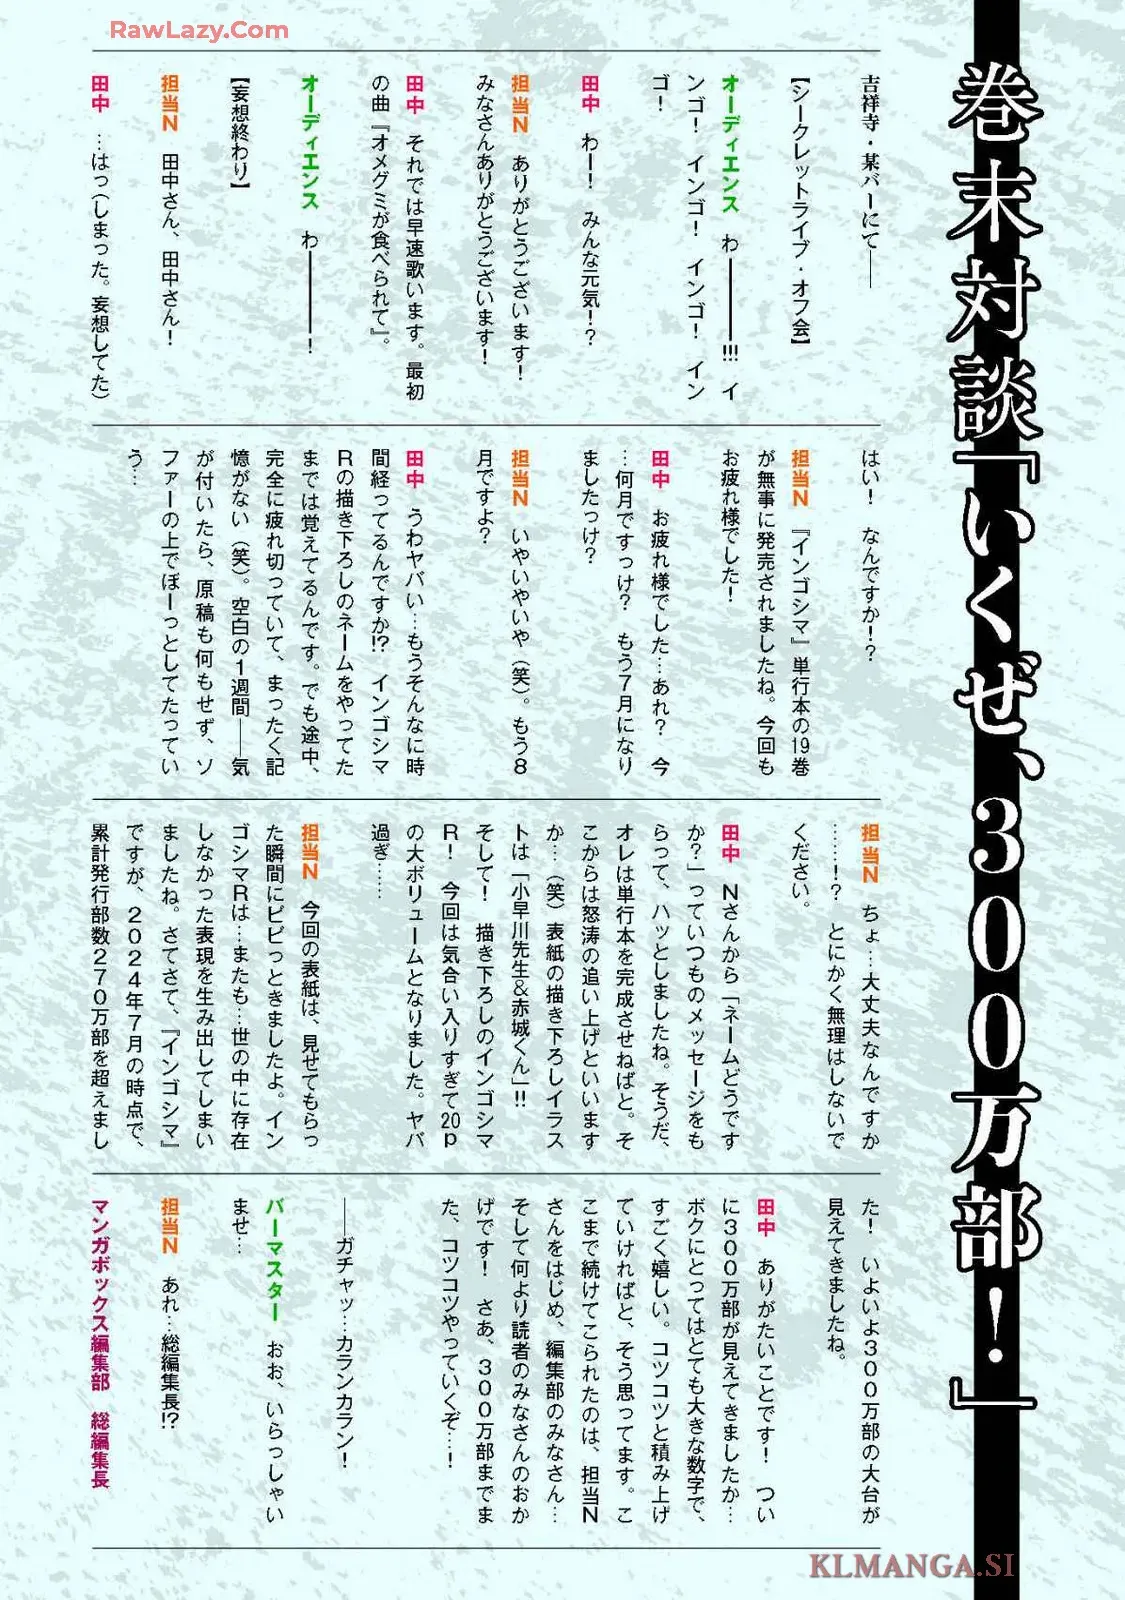 RawLazy.Com
巻末対談「いくぜ、300万部！」
吉祥寺・某バーにて――
【シークレットライブ・オフ会】
オーディエンス　わ――――!!!　イ
ンゴ！　インゴ！　インゴ！　イン
ゴ！
田中　わー！　みんな元気!?
担当N　ありがとうございます！
みなさんありがとうございます！
田中　それでは早速歌います。最初
の曲『オメグミが食べられて』。
オーディエンス　わ――――！
【妄想終わり】
担当N　田中さん、田中さん！
田中　…はっ(しまった。妄想してた)
はい！　なんですか!?
担当N　『インゴシマ』単行本の19巻
が無事に発売されましたね。今回も
お疲れ様でした！
田中　お疲れ様でした…あれ？　今
…何月ですっけ？　もう7月になり
ましたっけ？
担当N　いやいやいや（笑）。もう8
月ですよ？
田中　うわヤバい…もうそんなに時
間経ってるんですか!?　インゴシマ
Rの描き下ろしのネームをやってた
までは覚えてるんです。でも途中、
完全に疲れ切っていて、まったく記
憶がない（笑）。空白の1週間――気
が付いたら、原稿も何もせず、ソ
ファーの上でぼーっとしてたってい
う…
担当N　ちょ…大丈夫なんですか
……!?　とにかく無理はしないで
ください。
田中　Nさんから「ネームどうです
か？」っていつものメッセージをも
らって、ハッとしましたね。そうだ、
オレは単行本を完成させねばと。そ
こからは怒涛の追い上げといいます
か…（笑）表紙の描き下ろしイラス
トは「小早川先生＆赤城くん」!!
そして！　描き下ろしのインゴシマ
R！　今回は気合い入りすぎて20p
の大ボリュームとなりました。ヤバ
過ぎ……
担当N　今回の表紙は、見せてもらっ
た瞬間にビビっときましたよ。イン
ゴシマRは…またも…世の中に存在
しなかった表現を生み出してしまい
ましたね。さてさて、『インゴシマ』
ですが、2024年7月の時点で、
累計発行部数270万部を超えまし
た！　いよいよ300万部の大台が
見えてきましたね。
田中　ありがたいことです！　つい
に300万部が見えてきましたか…
ボクにとってはとても大きな数字で、
すごく嬉しい。コツコツと積み上げ
ていければと、そう思ってます。こ
こまで続けてこられたのは、担当N
さんをはじめ、編集部のみなさん…
そして何より読者のみなさんのおか
げです！　さあ、300万部までま
た、コツコツやっていくぞ…！
――ガチャッ…カランカラン！
バーマスター　おお、いらっしゃい
ませ…
担当N　あれ…総編集長!?
マンガボックス編集部　総編集長
KLMANGA.SI